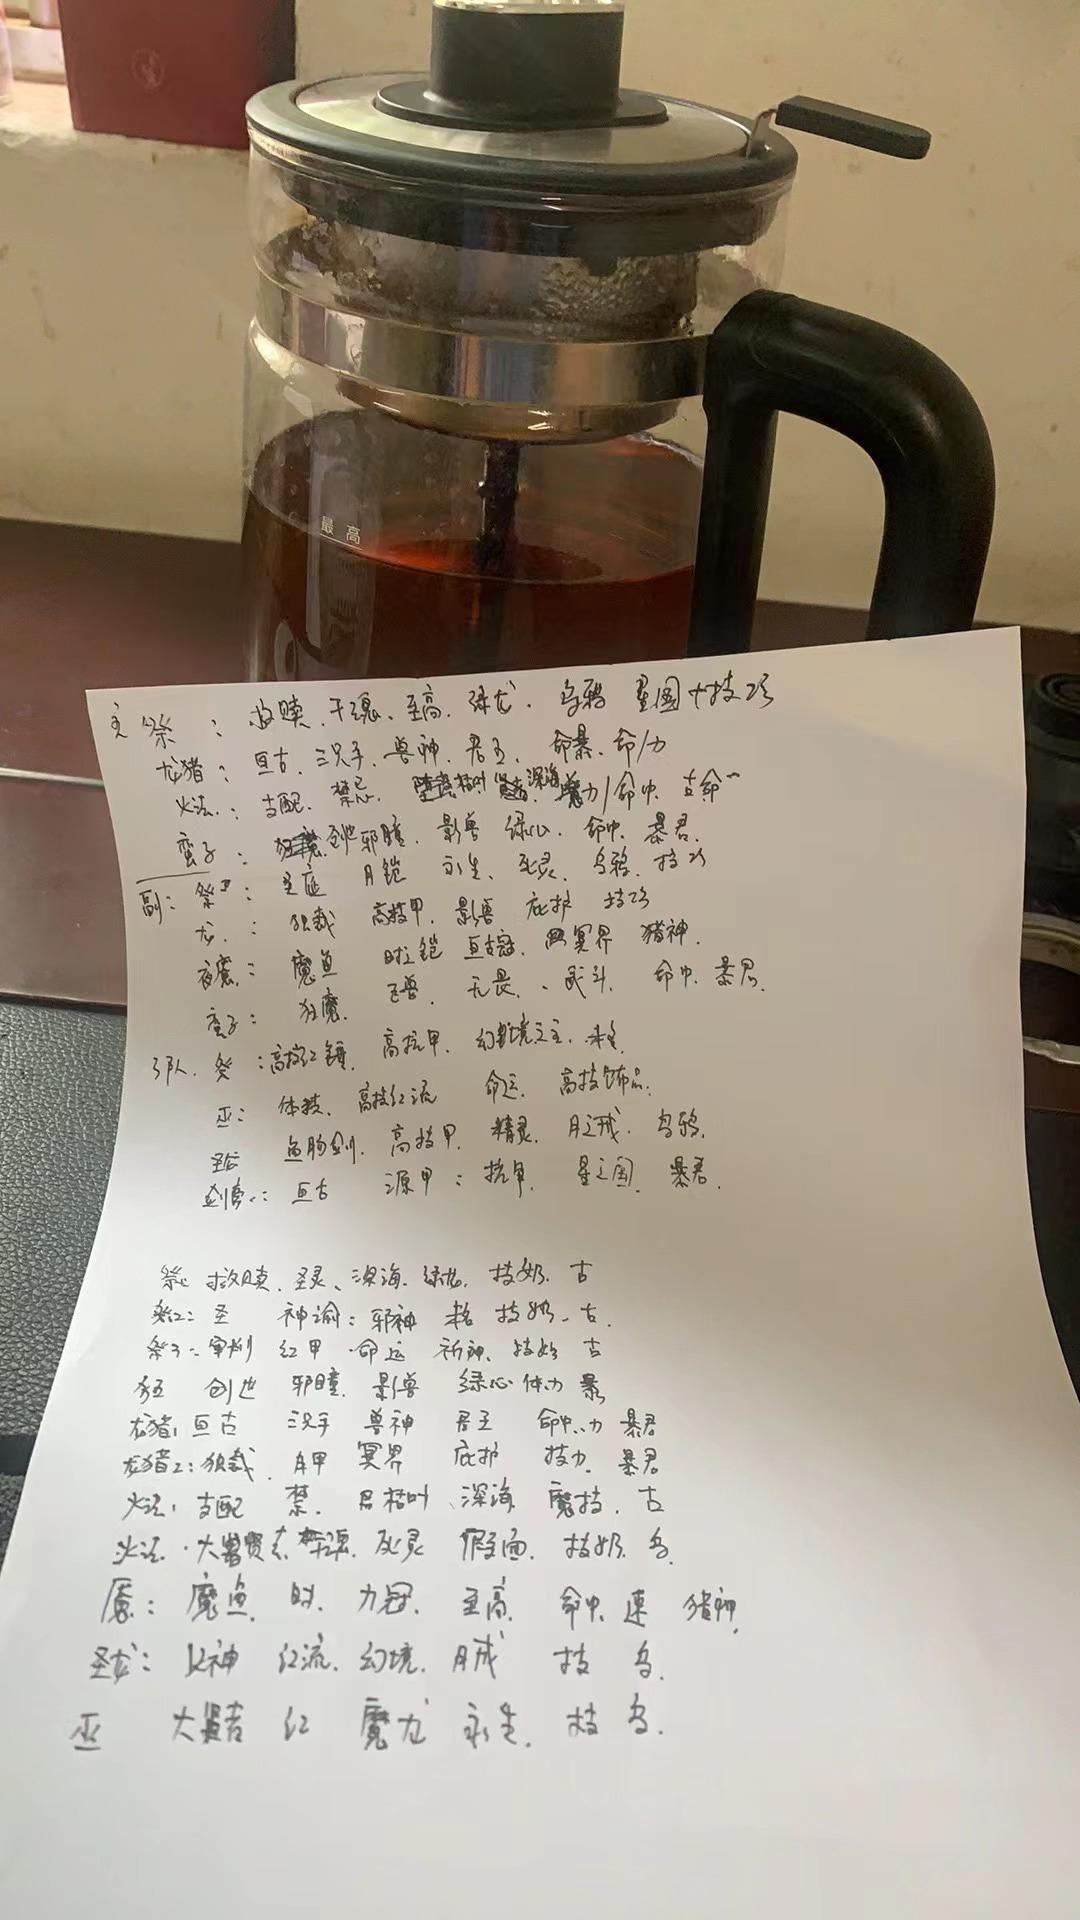 最高
主 祭：救赎、干魂、至高、绿龙、乌鸦 星国+技巧
龙猪：亘古、三只手、兽神、君主、命暴、命/力
火法：支配、禁忌、枯叶 深海 魔力/命中、古命
蛮子：创世 邪瞳、影兽 绿心、命中、暴君、
副：祭：圣庭 月铠 永生、死灵、乌鸦、技巧
龙：独裁 高技甲、影兽 庇护 技巧
夜魔：魔鱼 时之铠 亘古冠、冥界 猪神、
蛮子：狂魔、无畏、武斗、命中、暴君、
3队、祭：高技红锤、高抗甲、幻境之主、
巫：体技、高技红流 命运、高技饰品、
圣龙 鱼肠剑、高技甲、精灵、月之戒、乌鸦、
剑鱼：亘古 源甲：抗甲、星之国、暴君、
祭 救赎、圣灵、深海、绿龙、技奶、古
祭2：圣 神谕：邪神 技奶、古、
祭3：审判 红甲、命运 祈神、技奶 古
狂 创世 邪瞳、影兽 绿心 体力 暴
龙猪1 亘古 三只手 兽神 君主 命中、力 暴君
龙猪2：独裁、月甲 冥界 庇护 技力、暴君
火法1 支配 禁、君枯叶、深海 魔技、古
火法、大贤者、死灵 假面、技奶、乌、
魇：魔鱼、时、力冠、至高、命中、速 猪神、
圣龙：女神 红流、幻境、月戒 技 乌、
巫 大贤者 红 魔龙 永生、技 乌、